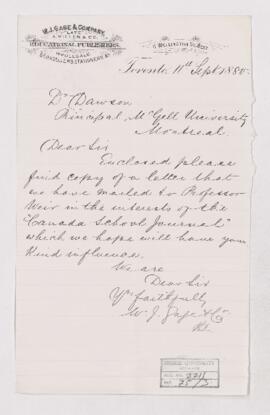 W.J. GAGE & COMPANY,
LATE
EDUCATIONAL PUBLISHERS,
WHOLESALE
BOOKSELLERS, STATIONERS, &c.
WELLINGTON ST. WEST
Toronto 11th Sept 1880
Dr Dawson
Principal McGill University
Montreal
Dear Sir
Enclosed please
find copy of a letter that
we have mailed to Professor
Weir in the interests of the
"Canada School Journal"
which we hope will have your
kind influence.
We are
Dear Sir
Yrs faithfully
W. J. Gage & Co
MCGILL UNIVERSITY
ARCHIVES